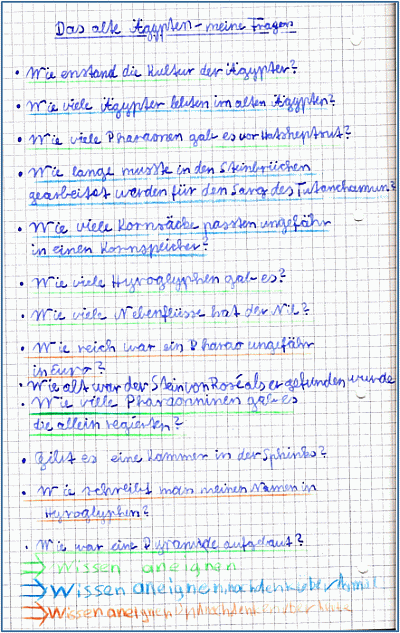 Das alte Ägypten – meine Fragen
• Wie enstand die Kultur der Ägypter?
• Wie viele Ägypter lebten im alten Ägypten?
• Wie viele Pharaonen gab es vor Hatscheptrut?
• Wie lange musste in den Steinbrüchen
gearbeitet werden für den Sarg des Tutanchamun?
• Wie viele Kornsäcke passten ungefähr
in einen Kornspeicher?
• Wie viele Hyroglyphen gab es?
• Wie viele Nebenflüsse hat der Nil?
• Wie reich war ein Pharao ungefähr
in Euro?
• Wie alt war der Stein von Rosé als er gefunden wurde
• Wie viele Pharaoninnen gab es
die allein regierten?
• Gibt es eine Kammer in der Sphinks?
• Wie schreibt man meinen Namen in
Hyroglyphen?
• Wie war eine Pyramide aufgebaut?
→ Wissen aneignen
→ Wissen aneignen, nachdenken über
→ Wissen aneignen nachdenken über